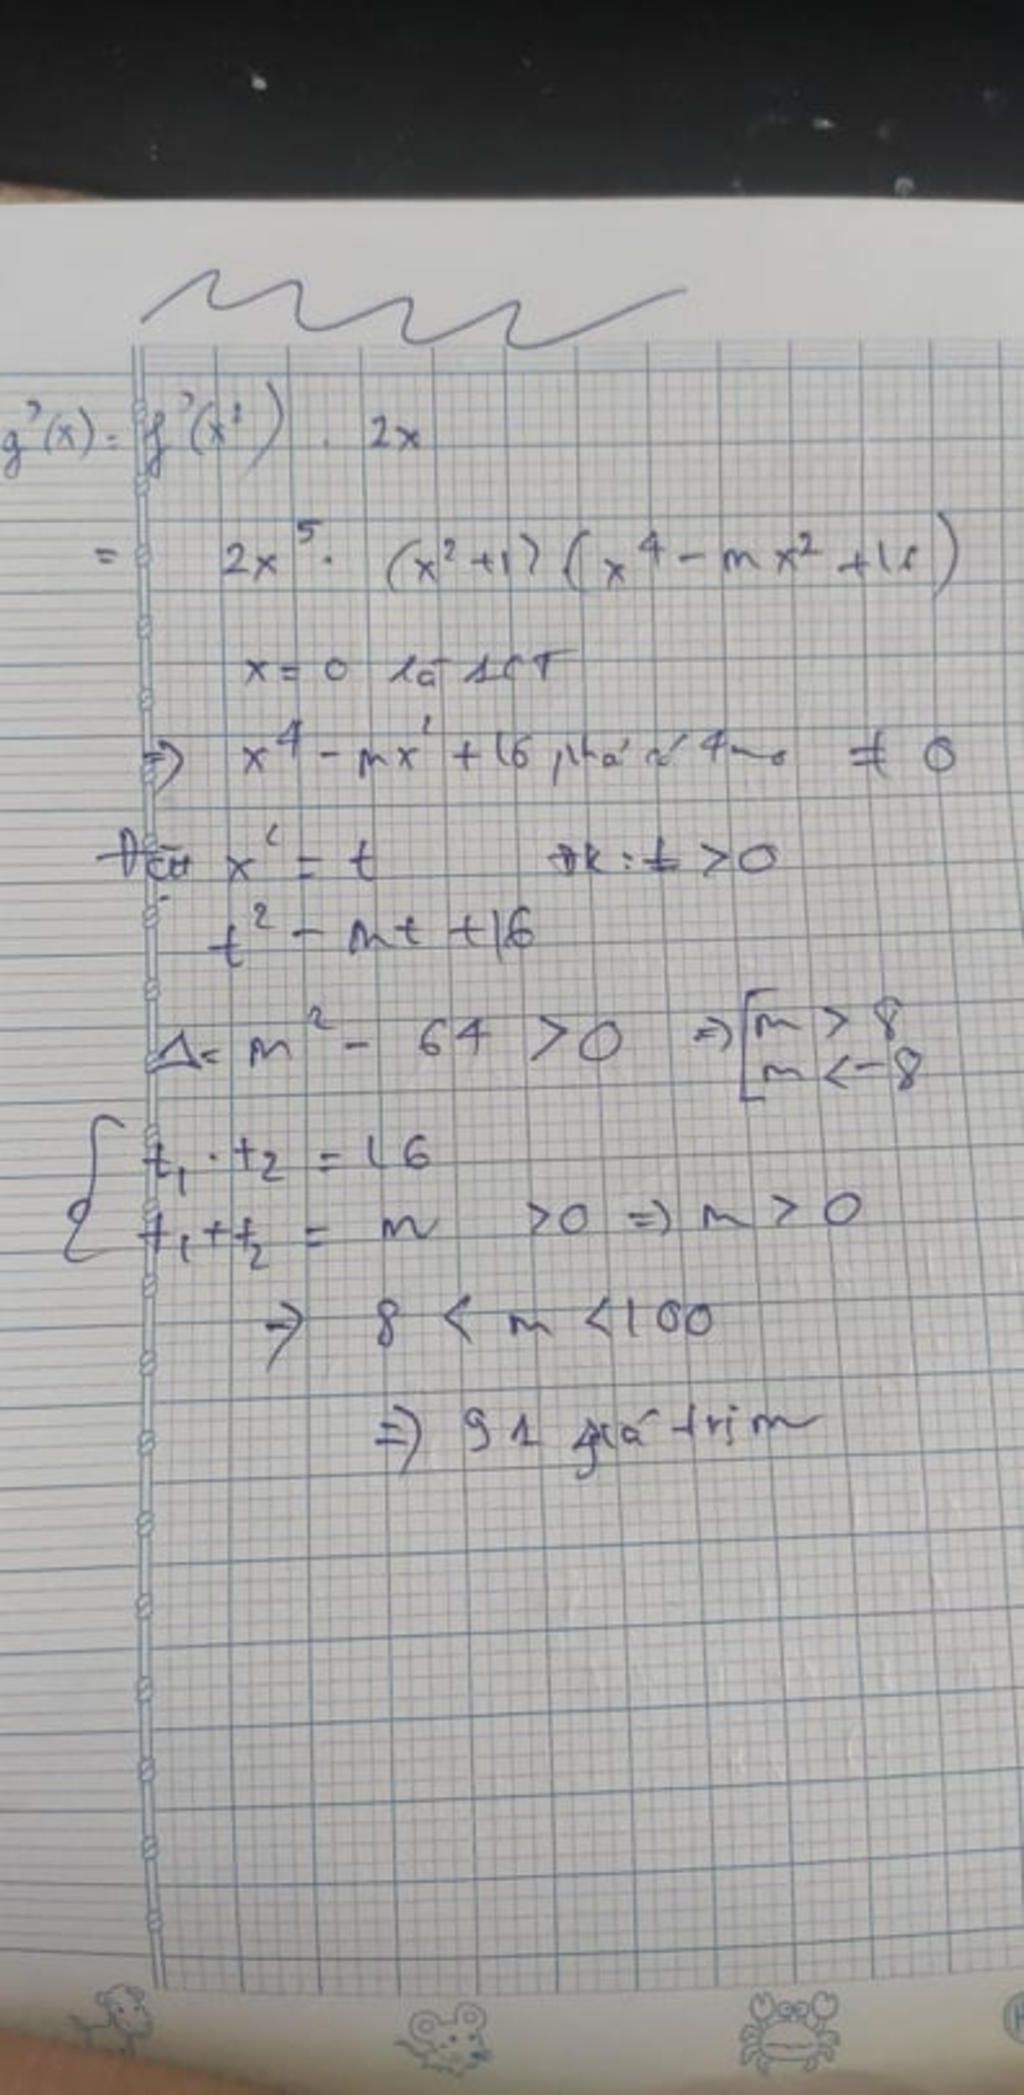 g'(x) = f'(x²) . 2x
= 2x⁵ . (x²+1) (x⁴ - mx² + 16)
x = 0 là 1 CT
=> x⁴ - mx² + 16 phải có 4 ≠ 0
Đặt x² = t đk: t > 0
t² - mt + 16
Δ = m² - 64 > 0 => [ m > 8
m < -8
{ t₁ . t₂ = 16
t₁ + t₂ = m > 0 => m > 0
=> 8 < m < 100
=> 91 giá trị m